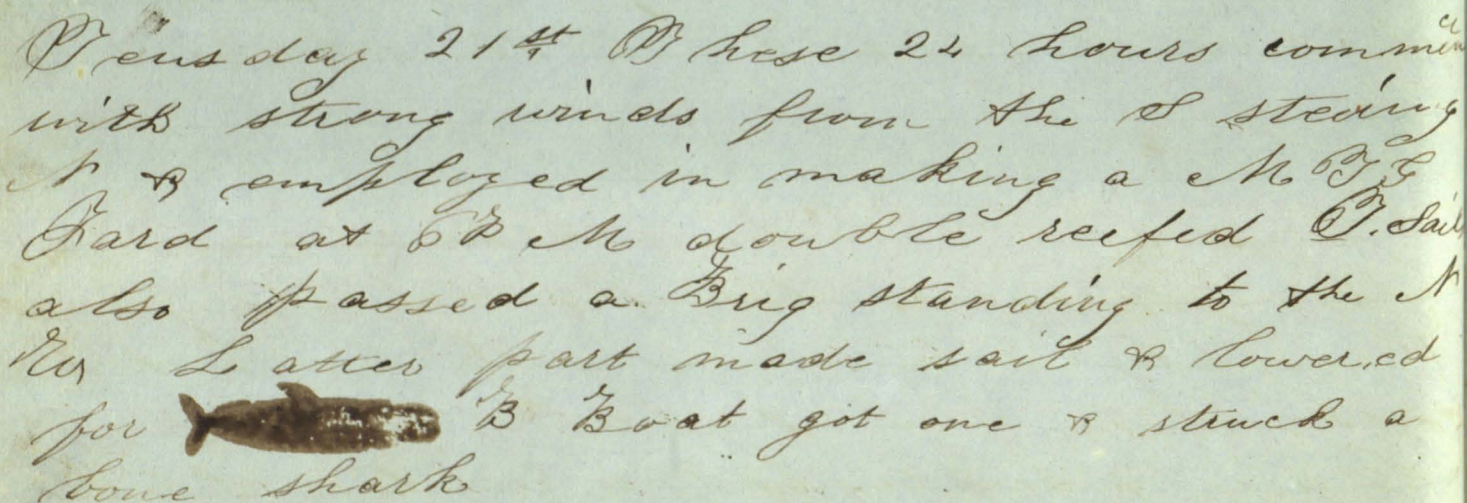 Teusday 21st These 24 hours commen
with strong winds from the S steaing
N & employed in making a M T G
Yard at 6 P M double reefed T. Sail
also passed a Brig standing to the N
Latter part made sail & lowered
for B Boat got one & struck a
bone shark